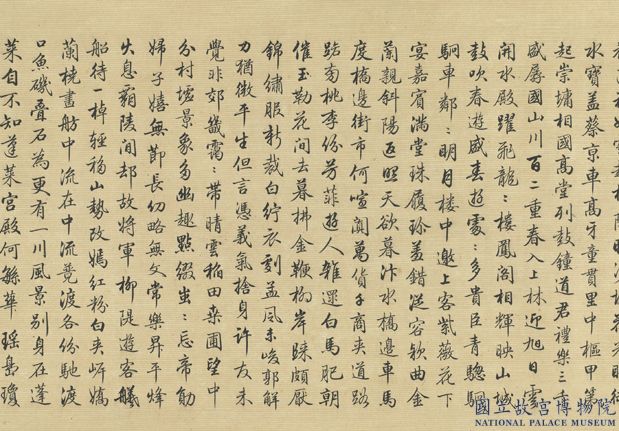 水寶蓋蔡京車高牙童貫里中樞甲第
起崇墉相國高堂列鼓鐘道君禮樂三
盛孱國山川百二重春入上林迎旭日雲
開水殿躍飛龍〻樓鳳閣相輝映山城
鼓吹春遊盛春遊處〻多貴臣青驄駉
駉車鄰〻明月樓中邀上客紫薇花下
宴嘉賓滿堂珠履珍羞錯從容欵曲金
蘭親斜陽返照天欲暮汴水橋邊車馬
度橋邊街市何喧闐萬貨子商夾道路
踏芳桃李份芳菲遊人雜遝白馬肥朝
催玉勒花間去暮拂金鞭柳岸踩頗厭
錦繡服新裁白紵衣劇孟風未峻郭解
力猶微平生但言憑義氣捨身許友未
覺非郊畿靄〻帶晴雲稻田桑圃望中
分村墟景象多幽趣點綴蚩〻忘帝勛
婦子嬉無節長幼略無文常樂昇平烽
火息霸陵間却故將軍柳隄遊客艤
船待一棹輕移山勢改嫣紅粉白夾岸嬌
蘭橈畫舫中流在中流競渡各份馳渡
口魚磯疊石為更有一川風景別身在蓬
萊自不知蓬萊宮殿何繁華瑤島瓊
國立故宮博物院
NATIONAL PALACE MUSEUM